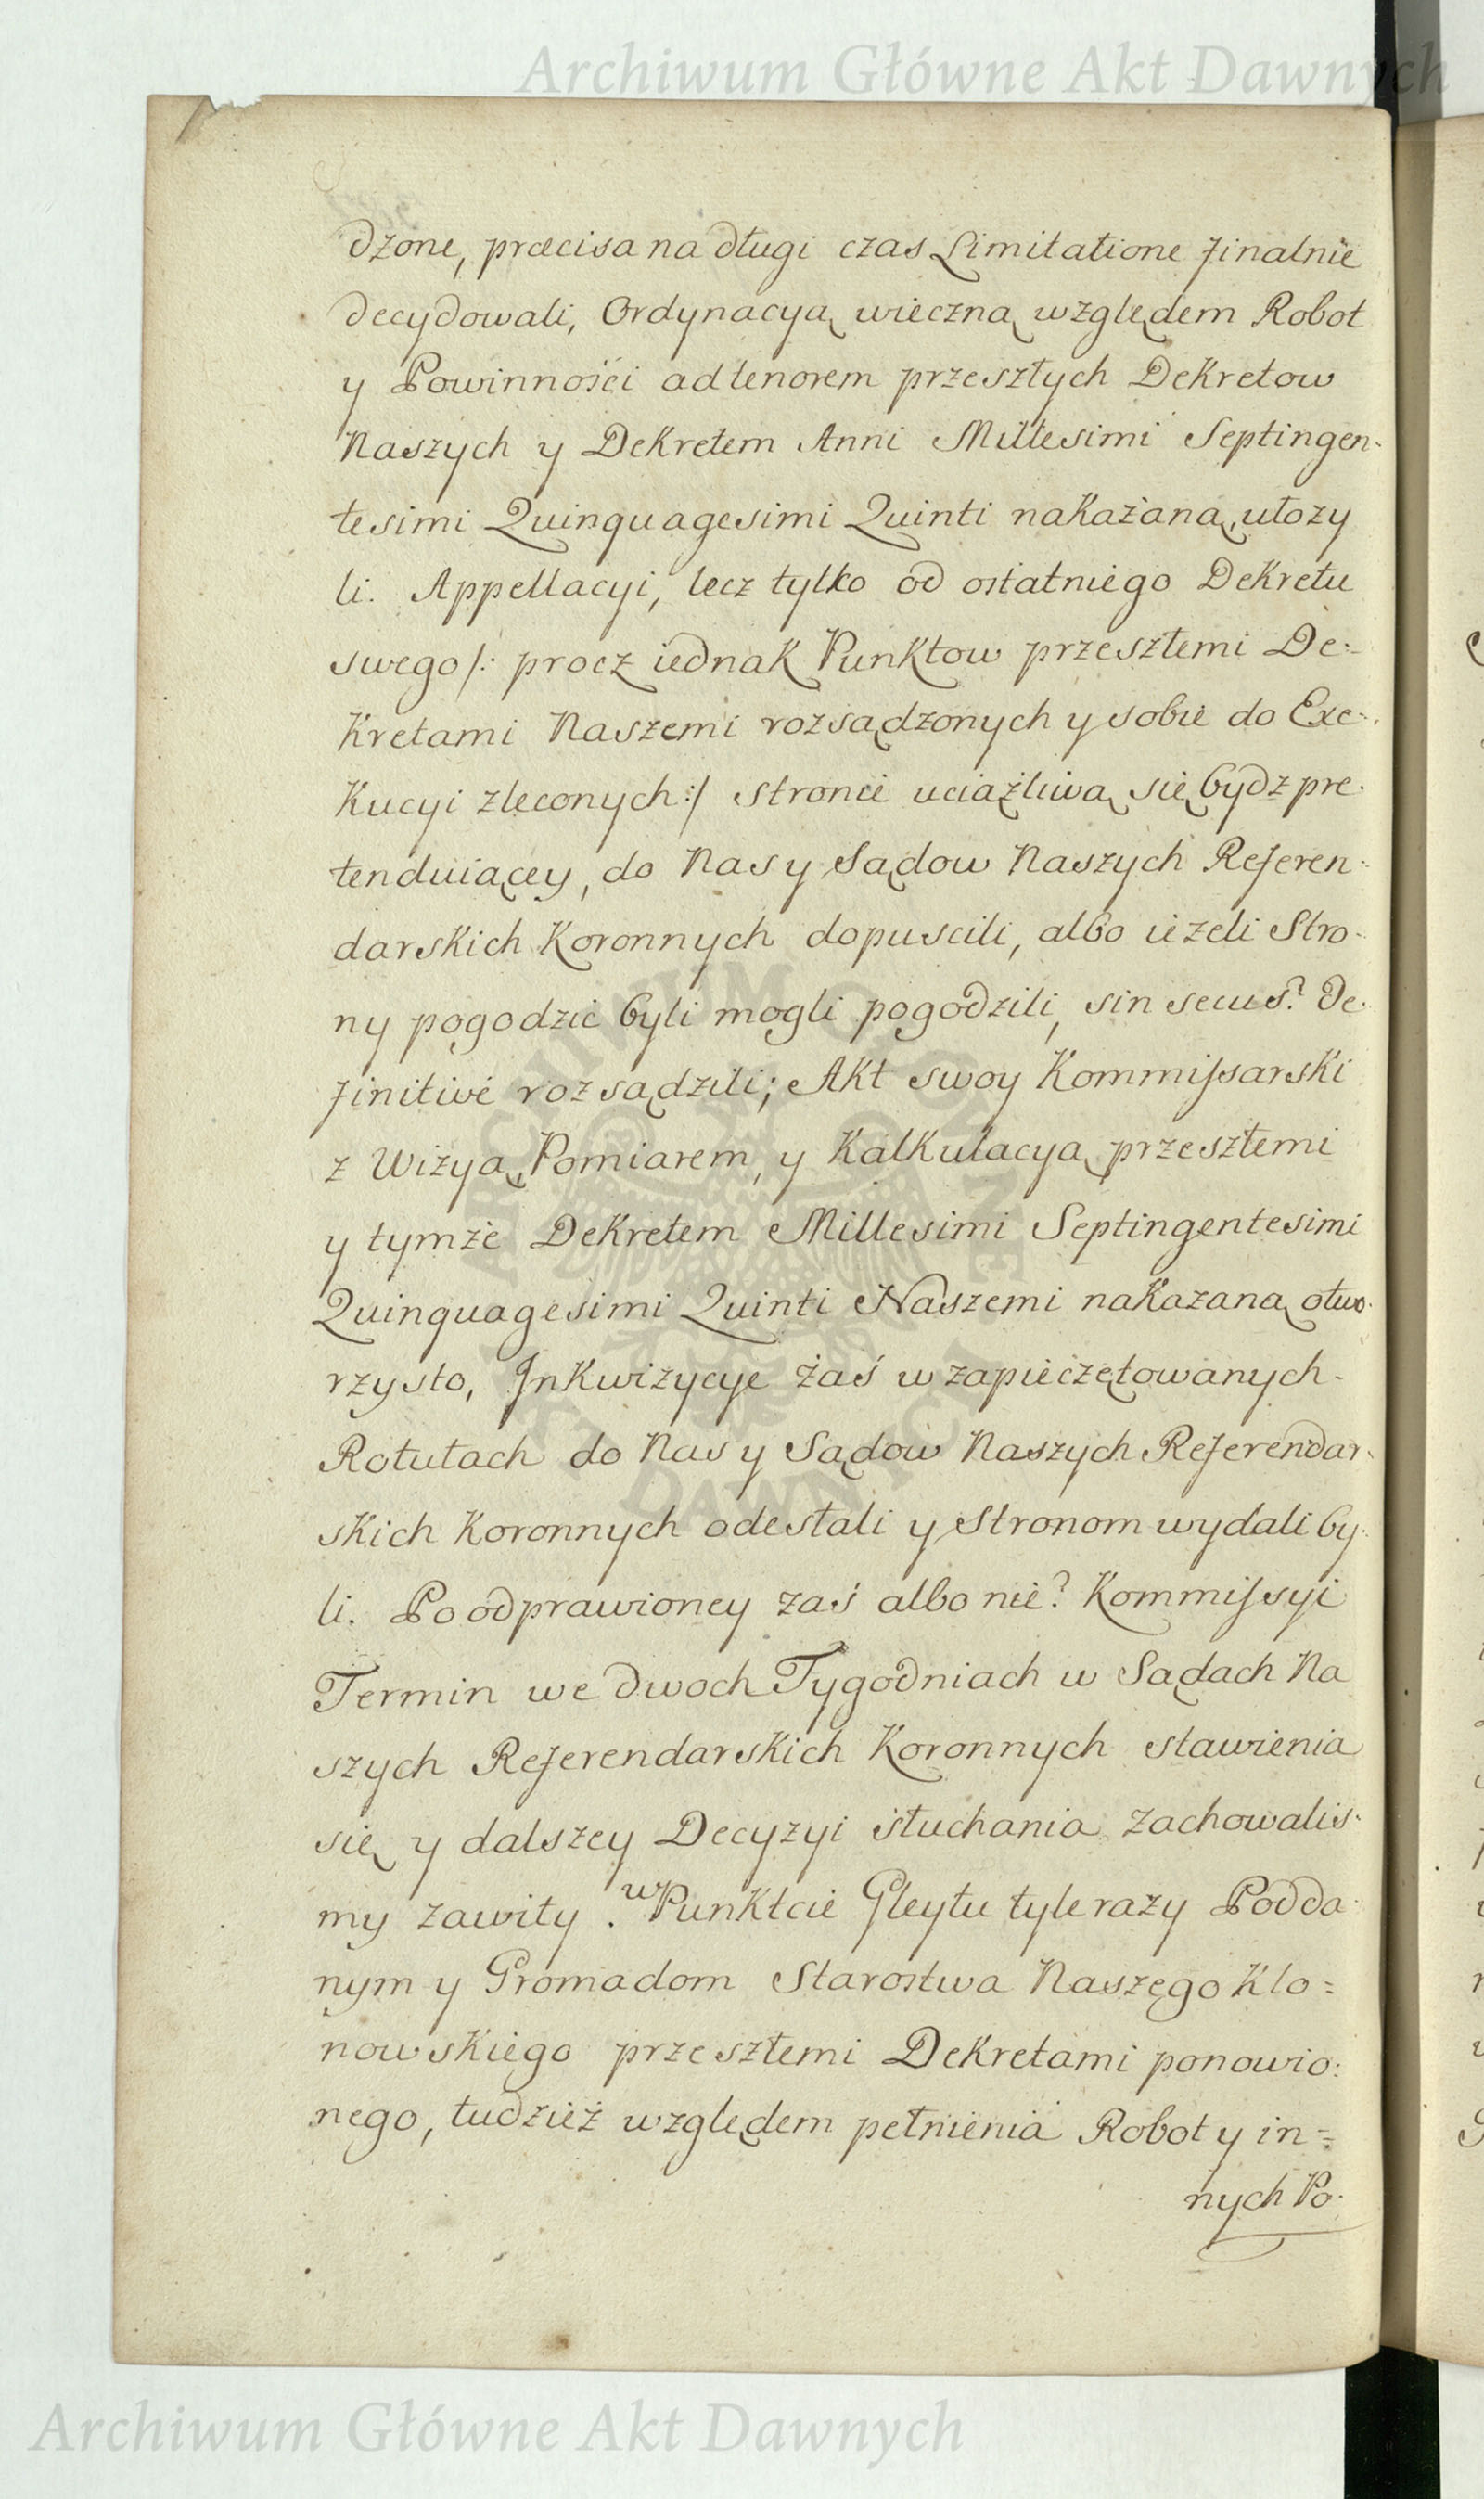 Archiwum Główne Akt Dawnych
dzone, præcisa na długi czas Limitatione finalnie
decydowali, Ordynacyą wieczną względem Robot
y Powinności ad tenorem przeszłych Dekretow
Naszych y Dekretem Anni Millesimi Septingen-
tesimi Quinquagesimi Quinti nakażaną ułozy
li. Appellacyi, lecz tylko od ostatniego Dekretu
swego /: procz iednak Punktow przeszłemi De-
kretami Naszemi rozsądzonych y sobie do Exe-
kucyi zleconych :/ stronie uciążliwą się bydz pre-
tenduiącey, do Nas y Sądow Naszych Referen-
darskich Koronnych dopuscili, albo ieżeli Stro-
ny pogodzić byli mogli pogodzili, sin secus? De-
finitivé rozsądzili; Akt swoy Kommissarski
z Wizyą, Pomiarem, y Kalkulacyą przeszłemi
y tymże Dekretem Millesimi Septingentesimi
Quinquagesimi Quinti Naszemi nakazaną otwo-
rzysto, Inkwizycye żaś w zapieczętowanych
Rotułach do Nas y Sądow Naszych Referendar-
skich Koronnych odesłali y Stronom wydali by-
li. Po odprawioney zaś albo nie? Kommissyi
Termin we dwoch Tygodniach w Sądach Na
szych Referendarskich Koronnych stawienia
się y dalszey Decyzyi słuchania zachowalis-
my zawity. w Punktcie Gleytu tyle razy Podda-
nym y Gromadom Starostwa Naszego Klo=
nowskiego przeszłemi Dekretami ponowio:
nego, tudzież względem pełnienia Robot y in=
nych Po-
ARCHIWUM GŁÓWNE
AKT DAWNYCH
Archiwum Główne Akt Dawnych